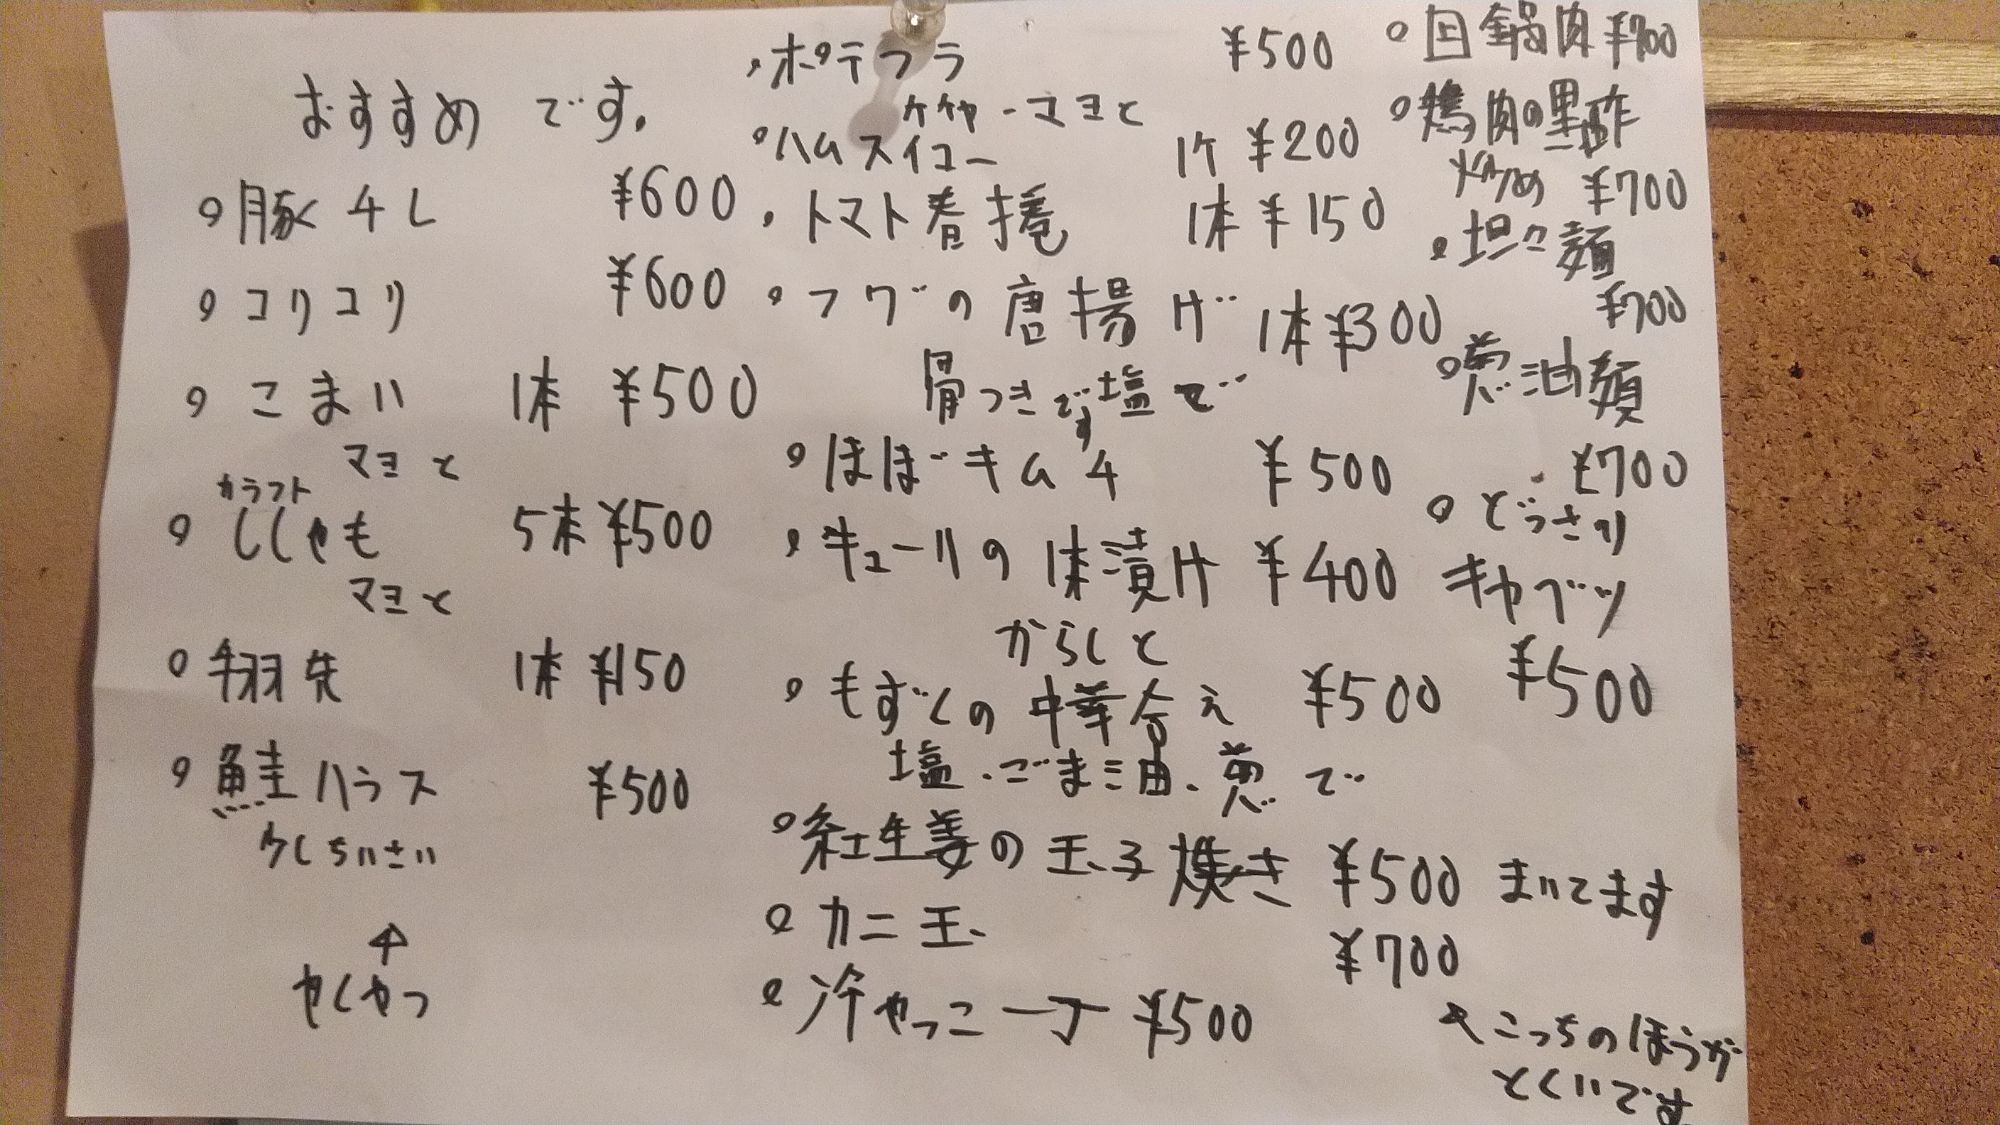 おすすめです。
豚チレ ¥600
コリコリ ¥600
こまい 1本 ¥500
マヨと
カラフト
ししゃも 5本 ¥500
マヨと
手羽先 1本 ¥150
鮭ハラス ¥500
少しちいさい
↑
やくやつ
ポテフラ ¥500
ケチャーマヨと
ハムスイコー 1ケ ¥200
トマト春捲 1本 ¥150
フグの唐揚げ 1本 ¥300
骨つきです塩で
ほぼキムチ ¥500
キューリの1本漬け ¥400
からしと
もずくの中華合え ¥500
塩、ごま油、葱で
紅生姜の玉子焼き ¥500 まいてます
カニ玉 ¥700
冷やっこ一丁 ¥500
回鍋肉 ¥700
鶏肉の黒酢
炒め ¥700
坦々麺
¥700
葱油麺
¥700
どっさり
キャベツ
¥500
こっちのほうが
とくいです